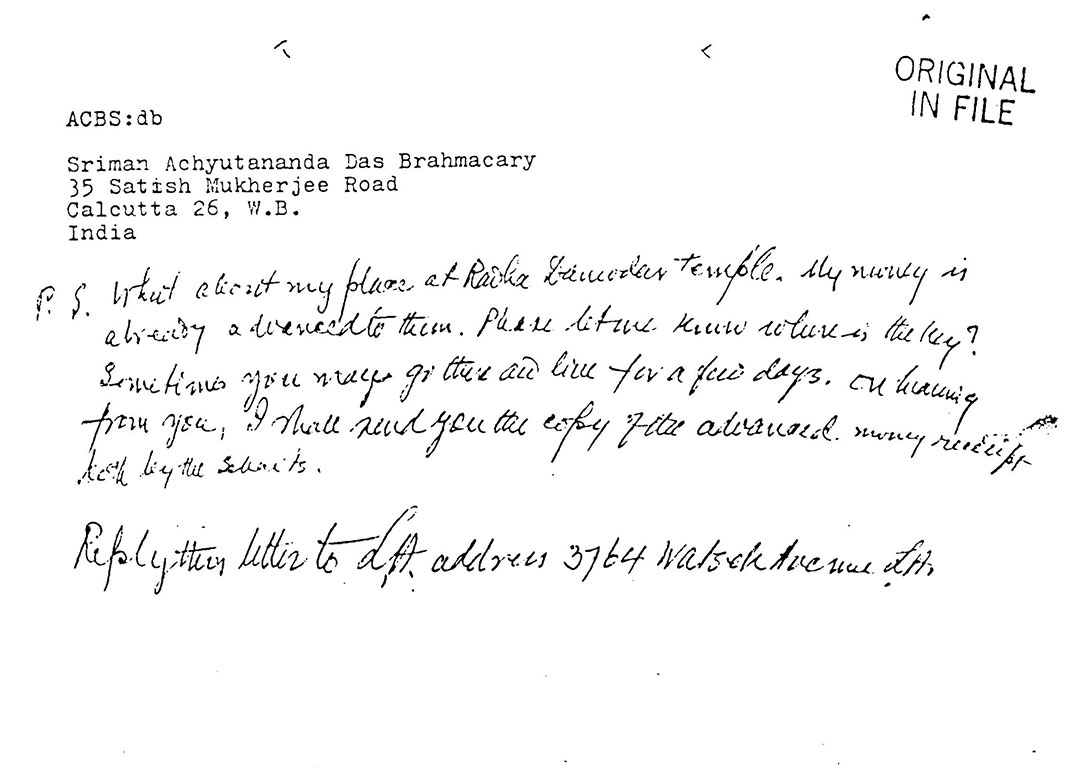 ORIGINAL
IN FILE
ACBS:db
Sriman Achyutananda Das Brahmacary
35 Satish Mukherjee Road
Calcutta 26, W.B.
India
P. S. What about my place at Radha Damodar temple. My money is
already advanced to them. Please let me know where is the key?
Sometimes you may go there and live for a few days. On hearing
from you, I shall send you the copy of the advanced money receipt
by the Sebaits.
Reply this letter to L.A. address 3764 Watseka Avenue L.A.